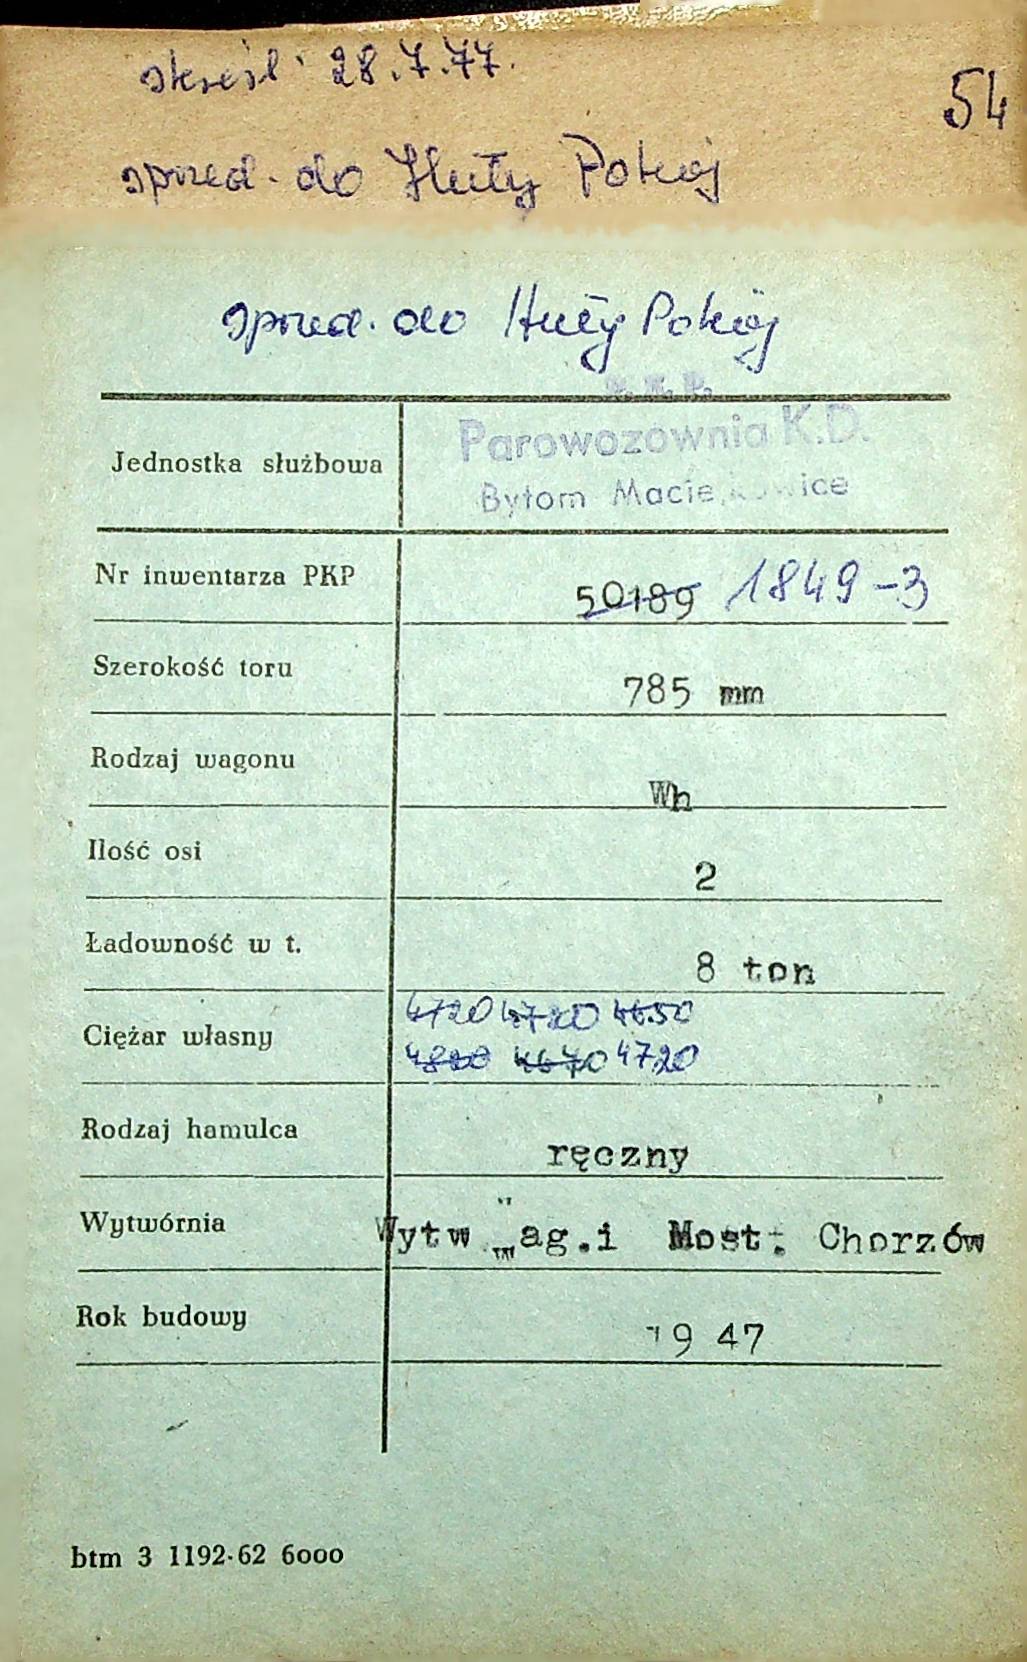 skreśl. 28.7.77.
54
sprzed. do Huty Pokój
sprzed. do Huty Pokój
P. K. P.
Jednostka służbowa Parowozownia K.D.
Bytom Maciejkowice
Nr inwentarza PKP 50189 1849-3
Szerokość toru 785 mm
Rodzaj wagonu Wh
Ilość osi 2
Ładowność w t. 8 ton
4720 4720 4650
Ciężar własny 4820 4670 4720
Rodzaj hamulca ręczny
Wytwórnia Wytw Wag.i Most. Chorzów
Rok budowy 1947
btm 3 1192-62 6000